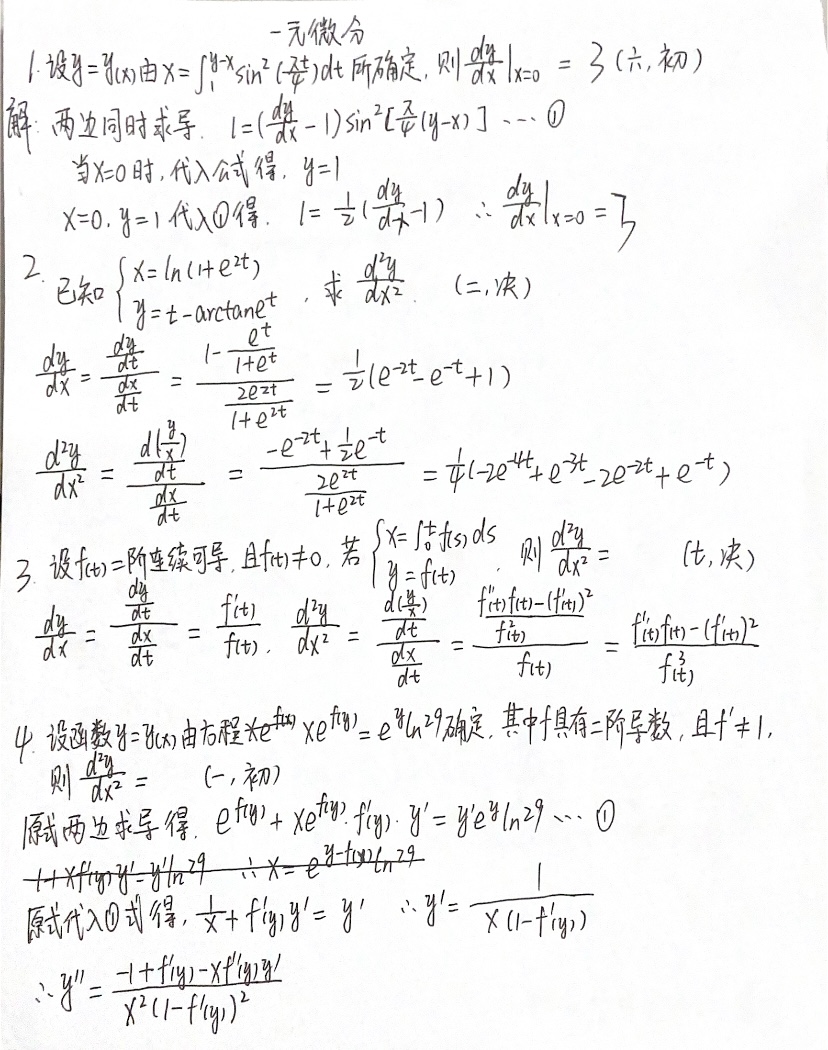 一元微分
1. 设y=y(x)由x=∫₁^(y-x) sin²(πt/4)dt所确定, 则dy/dx|x=0 = 3 (六, 初)
解: 两边同时求导. 1=(dy/dx -1)sin²[π/4(y-x)] ---- ①
当x=0时, 代入公式得, y=1
x=0, y=1代入①得. 1=1/2(dy/dx-1) ∴ dy/dx|x=0 = 3
2. 已知{x=ln(1+e^2t) y=t-arctane^t, 求 d²y/dx². (二, 决)
dy/dx = (dy/dt)/(dx/dt) = (1-e^t/(1+e^t))/(2e^2t/(1+e^2t)) = 1/2(e^-2t-e^-t+1)
d²y/dx² = (d(y/x)/dt)/(dx/dt) = (-e^-2t+1/2e^-t)/(2e^2t/(1+e^2t)) = 1/4(-2e^-4t+e^-3t-2e^-2t+e^-t)
3. 设f(t)二阶连续可导, 且f(t)≠0, 若{x=∫₀^t f(s)ds y=f(t), 则d²y/dx² = (七, 决)
dy/dx = (dy/dt)/(dx/dt) = f'(t)/f(t). d²y/dx² = (d(y/x)/dt)/(dx/dt) = ((f''(t)f(t)-(f'(t))²)/f²(t))/f(t) = (f''(t)f(t)-(f'(t))²)/f³(t)
4. 设函数y=y(x)由方程xe^f(y)=e^y ln29确定, 其中f具有二阶导数, 且f'≠1,
则 d²y/dx² = (一, 初)
原式两边求导得. e^f(y)+xe^f(y)·f'(y)·y'=y'e^y ln29 ---- ①
1+xf'(y)y'=y'ln29 ∴x=e^(y-f(y))ln29
原式代入①式得, 1/x+f'(y)y'=y' ∴y'=1/(x(1-f'(y)))
∴y''=(-1+f'(y)-xf'(y)y')/(x²(1-f'(y))²)